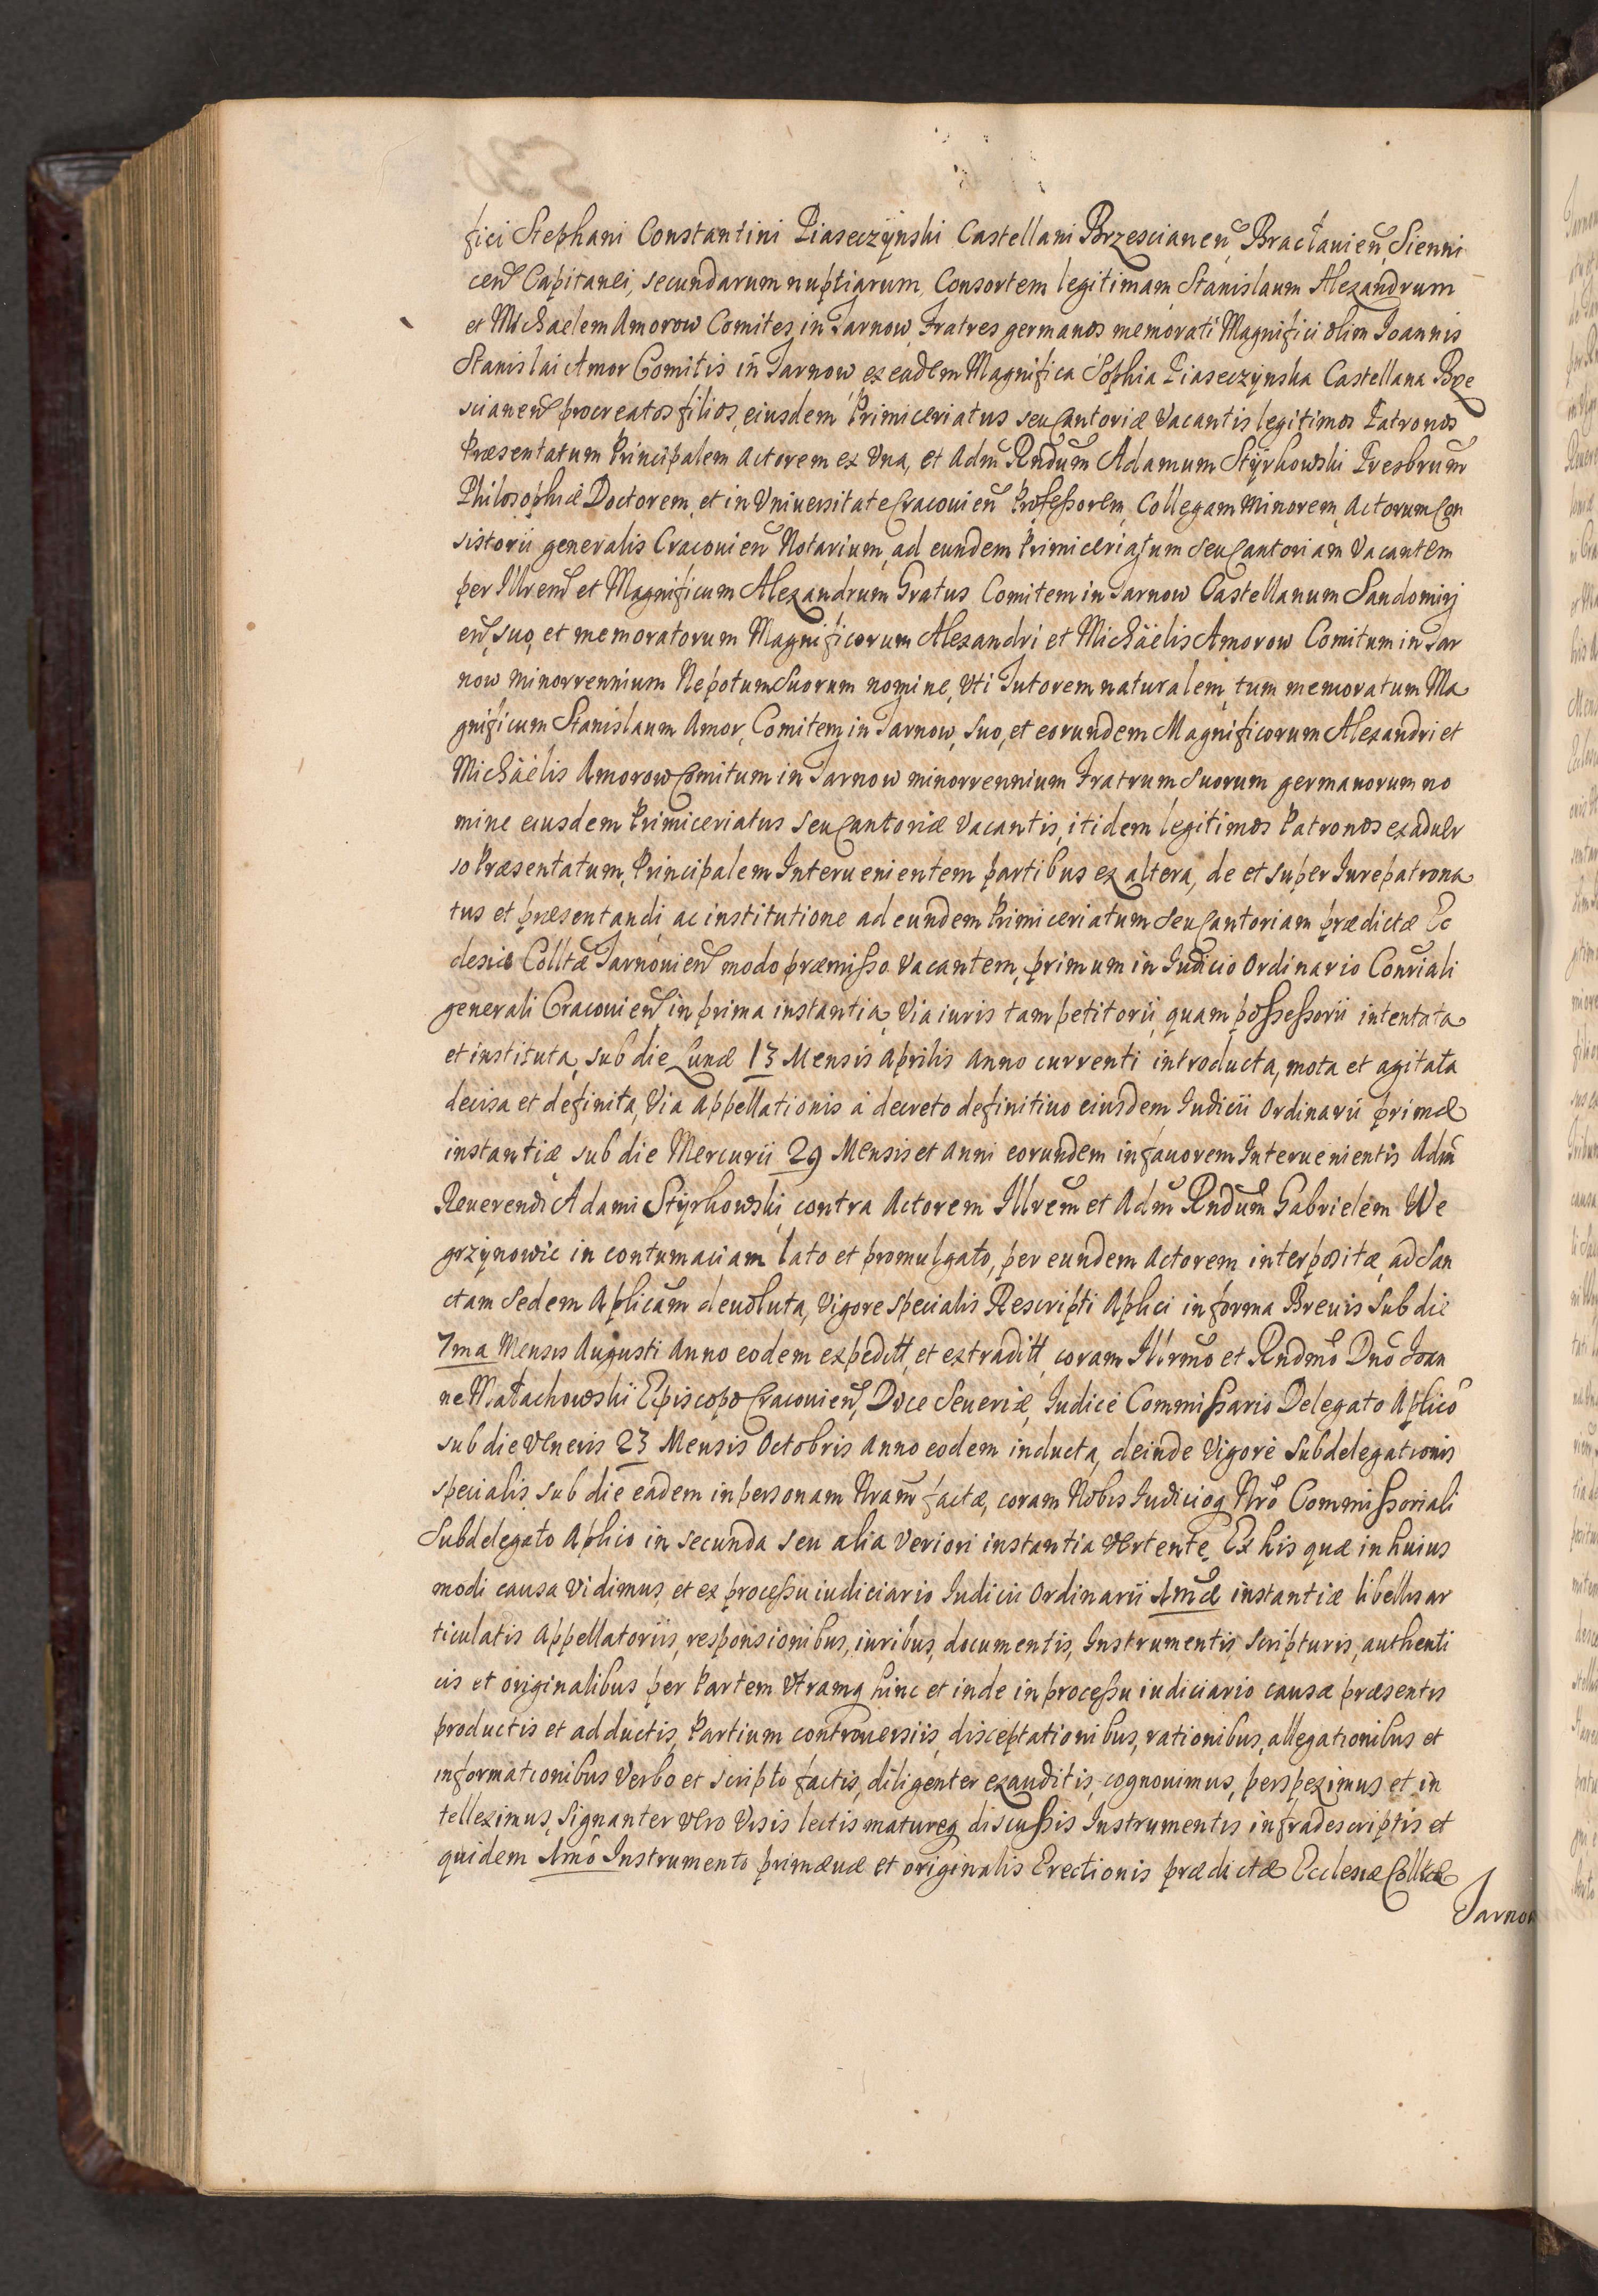 fici Stephani Constantini Piaseczÿnski Castellani Brzescianeñ Bracłauieñ, Sienni
ceñ Capitanei, secundarum nuptiarum Consortem legitimam Stanislaum Alexandrum
et Michaelem Amorow Comites in Tarnow, Fratres germanos memorati Magnifici olim Joannis
Stanislai Amor Comitis in Tarnow, ex eadem Magnifica Sophia Piaseczÿnska Castellana Brze
scianeñ procreatos filios, eiusdem Primiceriatus seu Cantoriæ Vacantis legitimos Patronos
Præsentatum Principalem Actorem ex Vna, et Adm̃ Rñdum Adamum Stÿrkowski Presbrum
Philosophiæ Doctorem, et in Vniuersitate Cracouieñ Professorem, Collegam Minorem, Actorum Con
sistorii generalis Cracouieñ Notarium, ad eundem Primiceriatum seu Cantoriam Vacantem
per Illreñ et Magnificum Alexandrum Gratus Comitem in Tarnow Castellanum Sandomirj
eñ, suo, et memoratorum Magnificorum Alexandri et Michäelis Amorow Comitum in Tar
now minorrennium Nepotum Suorum nomine, Vti Tutorem naturalem, tum memoratum Ma
gnificum Stanislaum Amor, Comitem in Tarnow, suo, et eorundem Magnificorum Alexandri et
Michäelis Amorow Comitum in Tarnow minorrennium Fratrum Suorum germanorum no
mine eiusdem Primiceriatus seu Cantoriæ Vacantis, itidem legitimos Patronos ex aduer
so Præsentatum, Principalem Interuenientem partibus ex altera, de et super Iurepatrona
tus et præsentandi, ac institutione ad eundem Primiceriatum seu Cantoriam prædictæ Ec
clesiæ Colltæ Tarnouieñ modo præmisso Vacantem, primum in Iudicio Ordinario Conriali
generali Cracouieñ in prima instantia, Via iuris tam petitorii, quam possessorii intentata
et instituta, sub die Lunæ 13 Mensis Aprilis Anno currenti introducta, mota et agitata
decisa et definita, Via Appellationis à decreto definitiuo eiusdem Iudicii Ordinarii primæ
instantiæ sub die Mercurii 29 Mensis et Anni eorundem in fauorem Interuenientis Adm̃
Reuerendi Adami Stÿrkowski, contra Actorem Illrem et Adm̃ Rñdum Gabrielem We
grzÿnowic in contumaciam lato et promulgato, per eundem Actorem interpositæ, ad San
ctam Sedem Aplicam deuoluta, Vigore specialis Rescripti Aplici in forma Breuis sub die
7ma Mensis Augusti Anno eodem expeditt, et extraditt, coram Illrmo et Rndmo Dno Joan
ne Małachowski Episcopo Cracouieñ, Duce Seueriæ, Iudice Commissario Delegato Aplico
sub die Veneris 23 Mensis Octobris Anno eodem inducta, deinde Vigore Subdelegationis
specialis sub die eadem in personam Nram factæ, coram Nobis Iudicioq Nro Commissoriali
Subdelegato Aplico in secunda seu alia Veriori instantia Vertente. Ex his quæ in huius
modi causa Vidimus, et ex processu iudiciario Iudicii Ordinarii 1mæ instantiæ libellis ar
ticulatis Appellatoriis, responsionibus, iuribus, documentis, Instrumentis, scripturis, authenti
cis et originalibus per Partem Vtramq hinc et inde in processu iudiciario causæ præsentis
productis et adductis, Partium controuersiis, disceptationibus, rationibus, allegationibus et
informationibus Verbo et scripto factis, diligenter exauditis, cognouimus, perspeximus, et in
telleximus, Signanter Vero Visis lectis matureq discussis Instrumentis infradescriptis et
quidem 1mo Instrumento primæuæ et originalis Erectionis prædictæ Ecclesiæ Colltæ